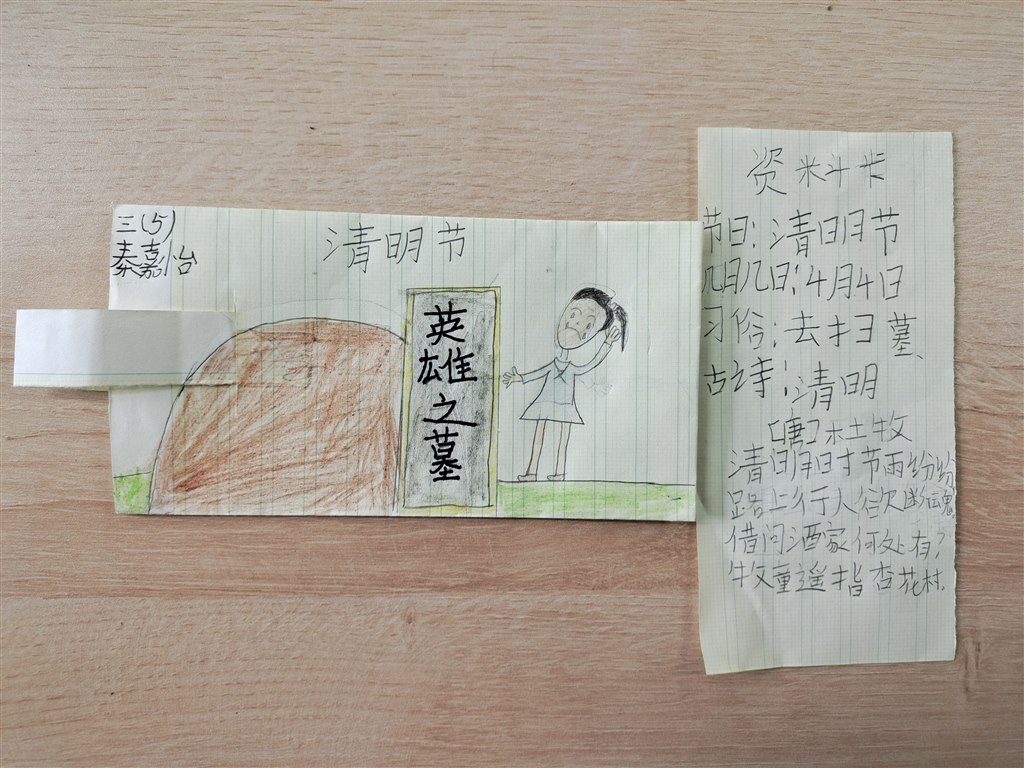 三(5)
秦嘉怡
清明节
英雄之墓
资料卡
节日:清明节
几月几日:4月4日
习俗:去扫墓、
古诗:清明
[唐]杜牧
清明时节雨纷纷
路上行人欲断魂
借问酒家何处有?
牧童遥指杏花村.